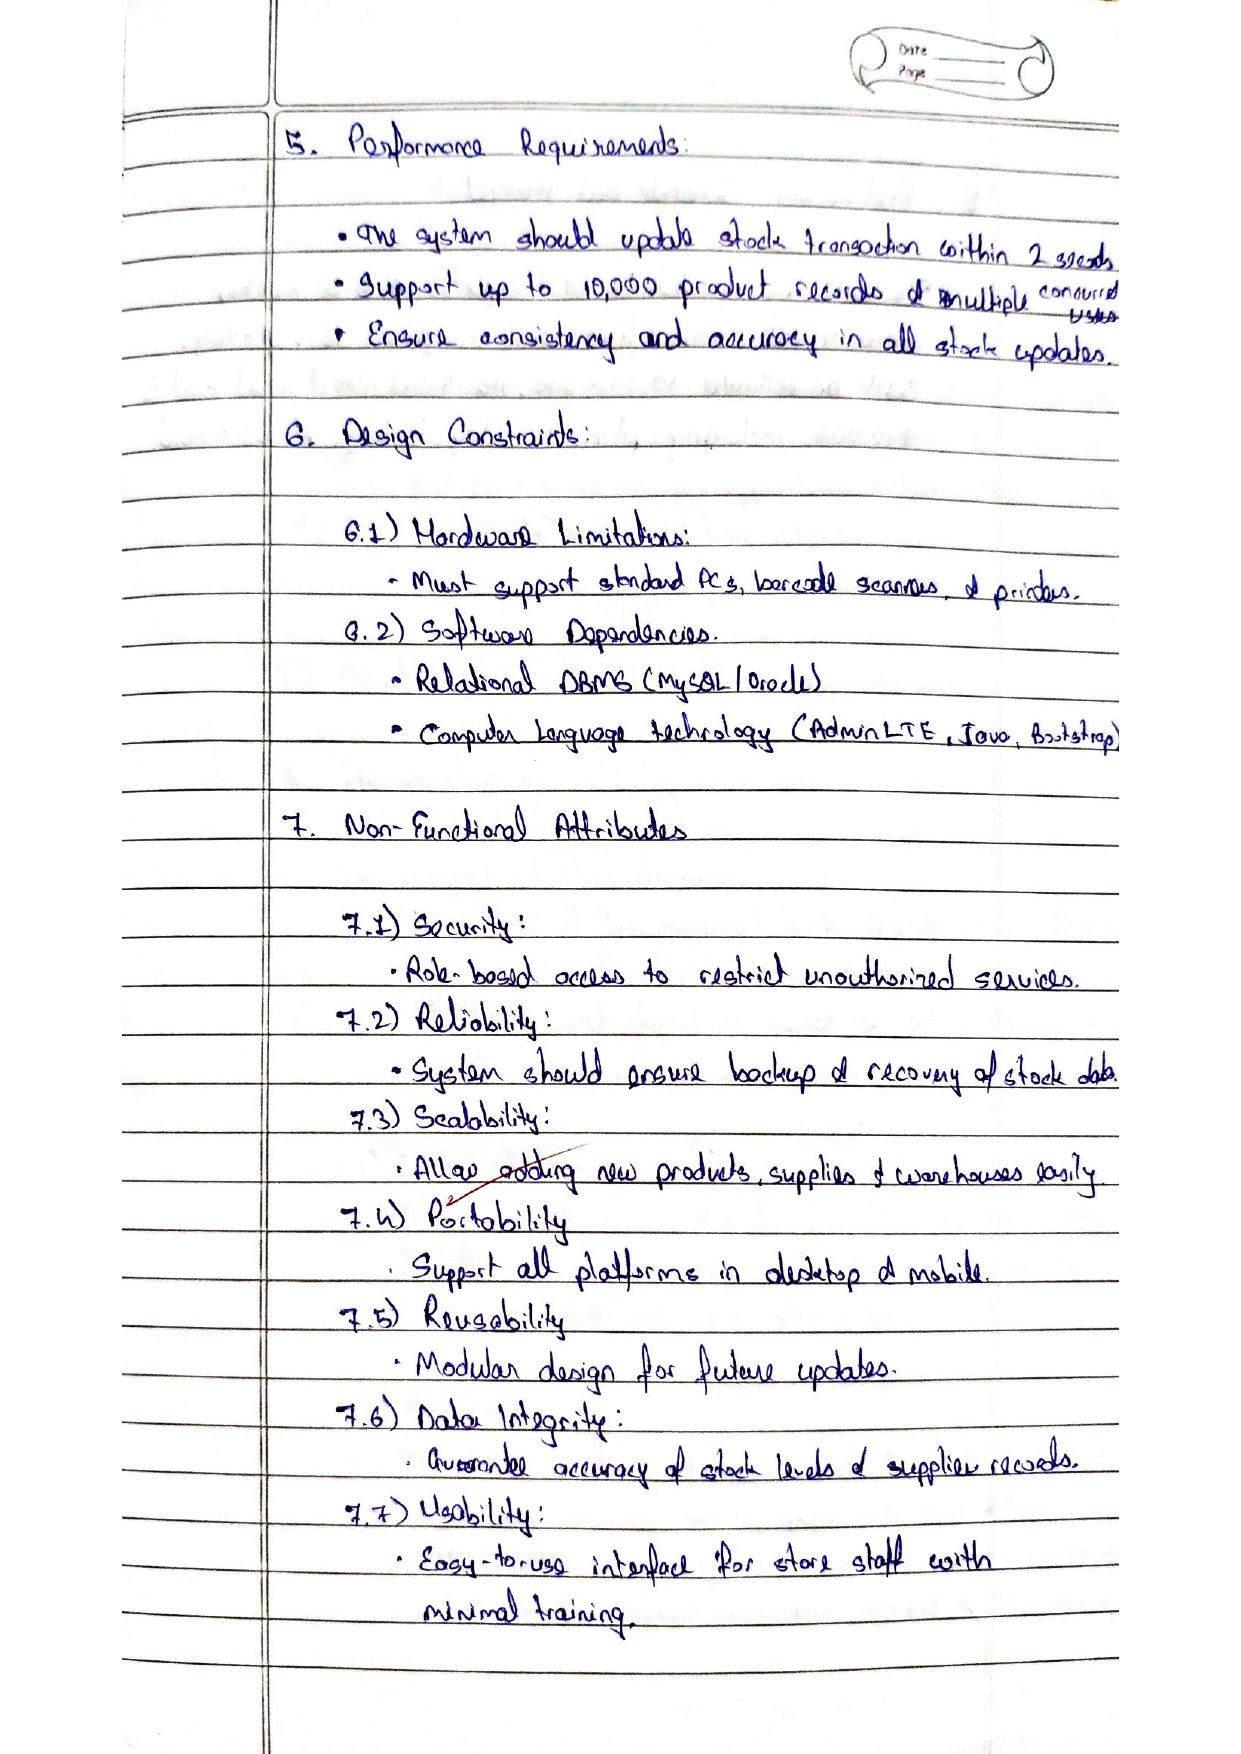 Date
Page
5. Performance Requirements:
• The system should update stock transaction within 2 seconds
• Support up to 10,000 product records & multiple concurrent
users
• Ensure consistency and accuracy in all stock updates.
6. Design Constraints:
6.1) Hardware Limitations:
• Must support standard PCs, barcode scanners, & printers.
6.2) Software Dependencies.
• Relational DBMS (MySQL / Oracle)
• Computer Language technology (AdminLTE, Java, Bootstrap)
7. Non-Functional Attributes
7.1) Security:
• Role-based access to restrict unauthorized services.
7.2) Reliability:
• System should ensure backup & recovery of stock data.
7.3) Scalability:
• Allow adding new products, supplies & warehouses easily
7.4) Portability
• Support all platforms in desktop & mobile.
7.5) Reusability
• Modular design for future updates.
7.6) Data Integrity:
• Guarantee accuracy of stock levels & supplier records.
7.7) Usability:
• Easy-to-use interface for store staff with
minimal training.